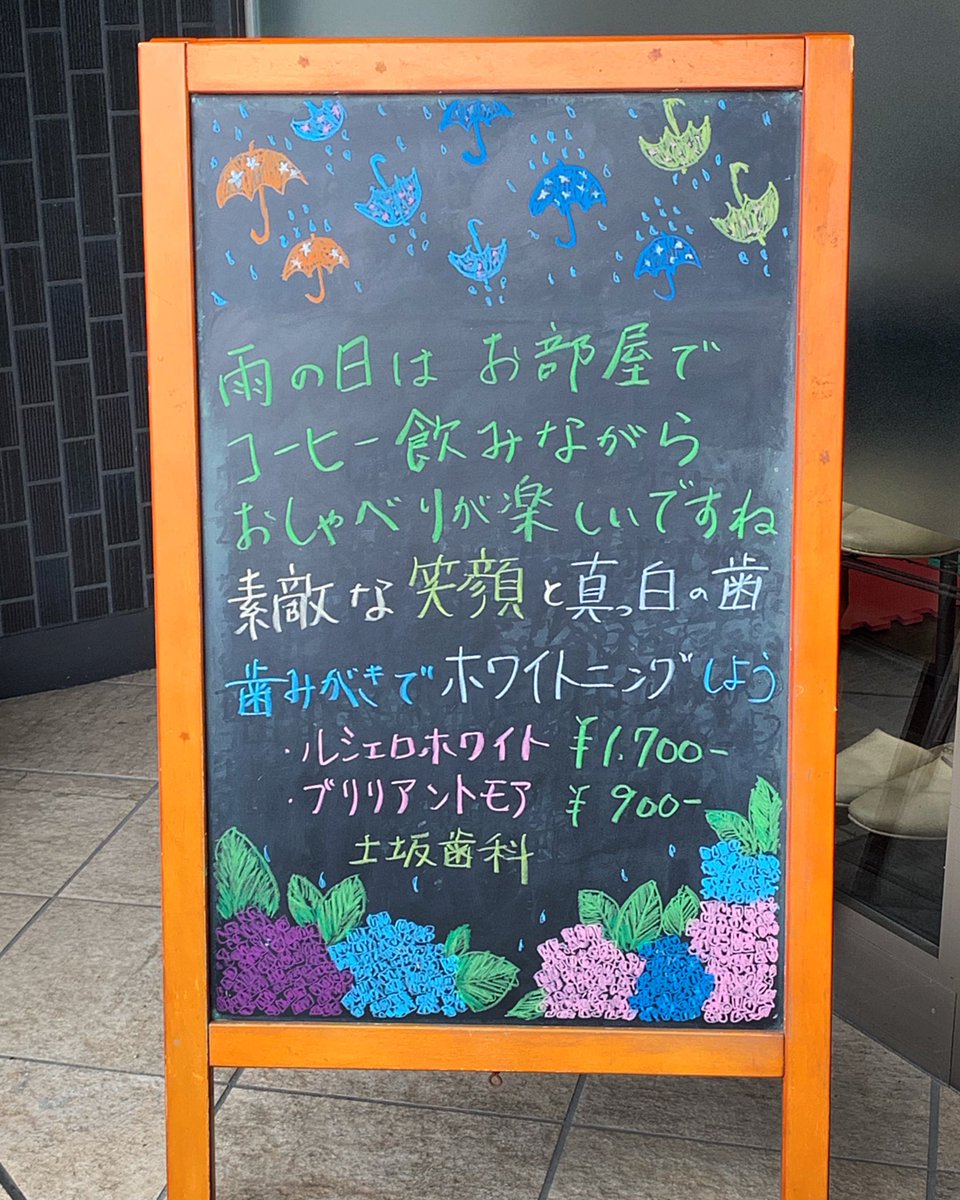 雨の日は お部屋で
コーヒー飲みながら
おしゃべりが楽しいですね
素敵な笑顔と真っ白の歯
歯みがきでホワイトニングしよう
・ルシェロホワイト ¥1,700-
・ブリリアントモア ¥900-
土坂歯科